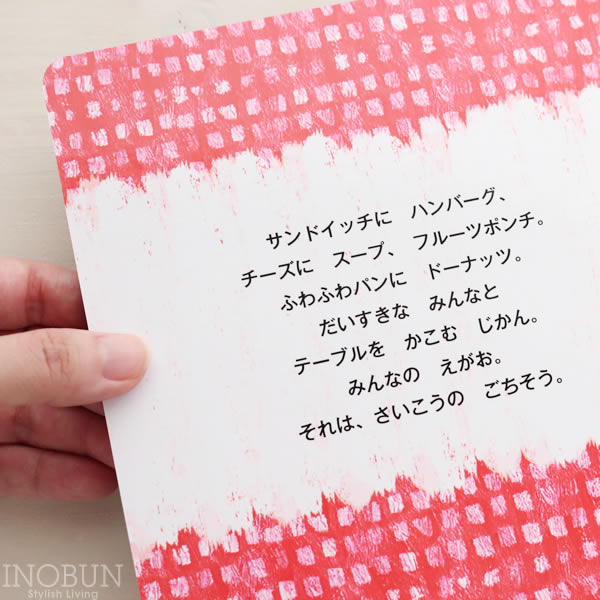 サンドイッチに　ハンバーグ、
チーズに　スープ、フルーツポンチ。
ふわふわパンに　ドーナッツ。
だいすきな　みんなと
テーブルを　かこむ　じかん。
みんなの　えがお。
それは、さいこうの　ごちそう。
INOBUN
Stylish Living